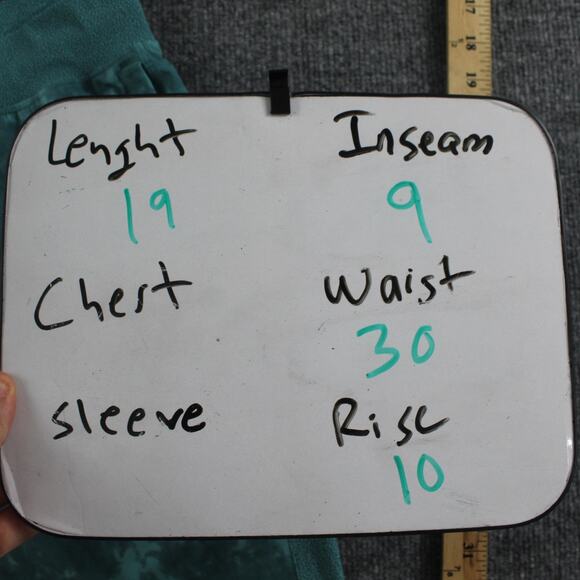 Lenght
19
Chest
sleeve
Inseam
9
Waist
30
Rise
10
17
18
19
31